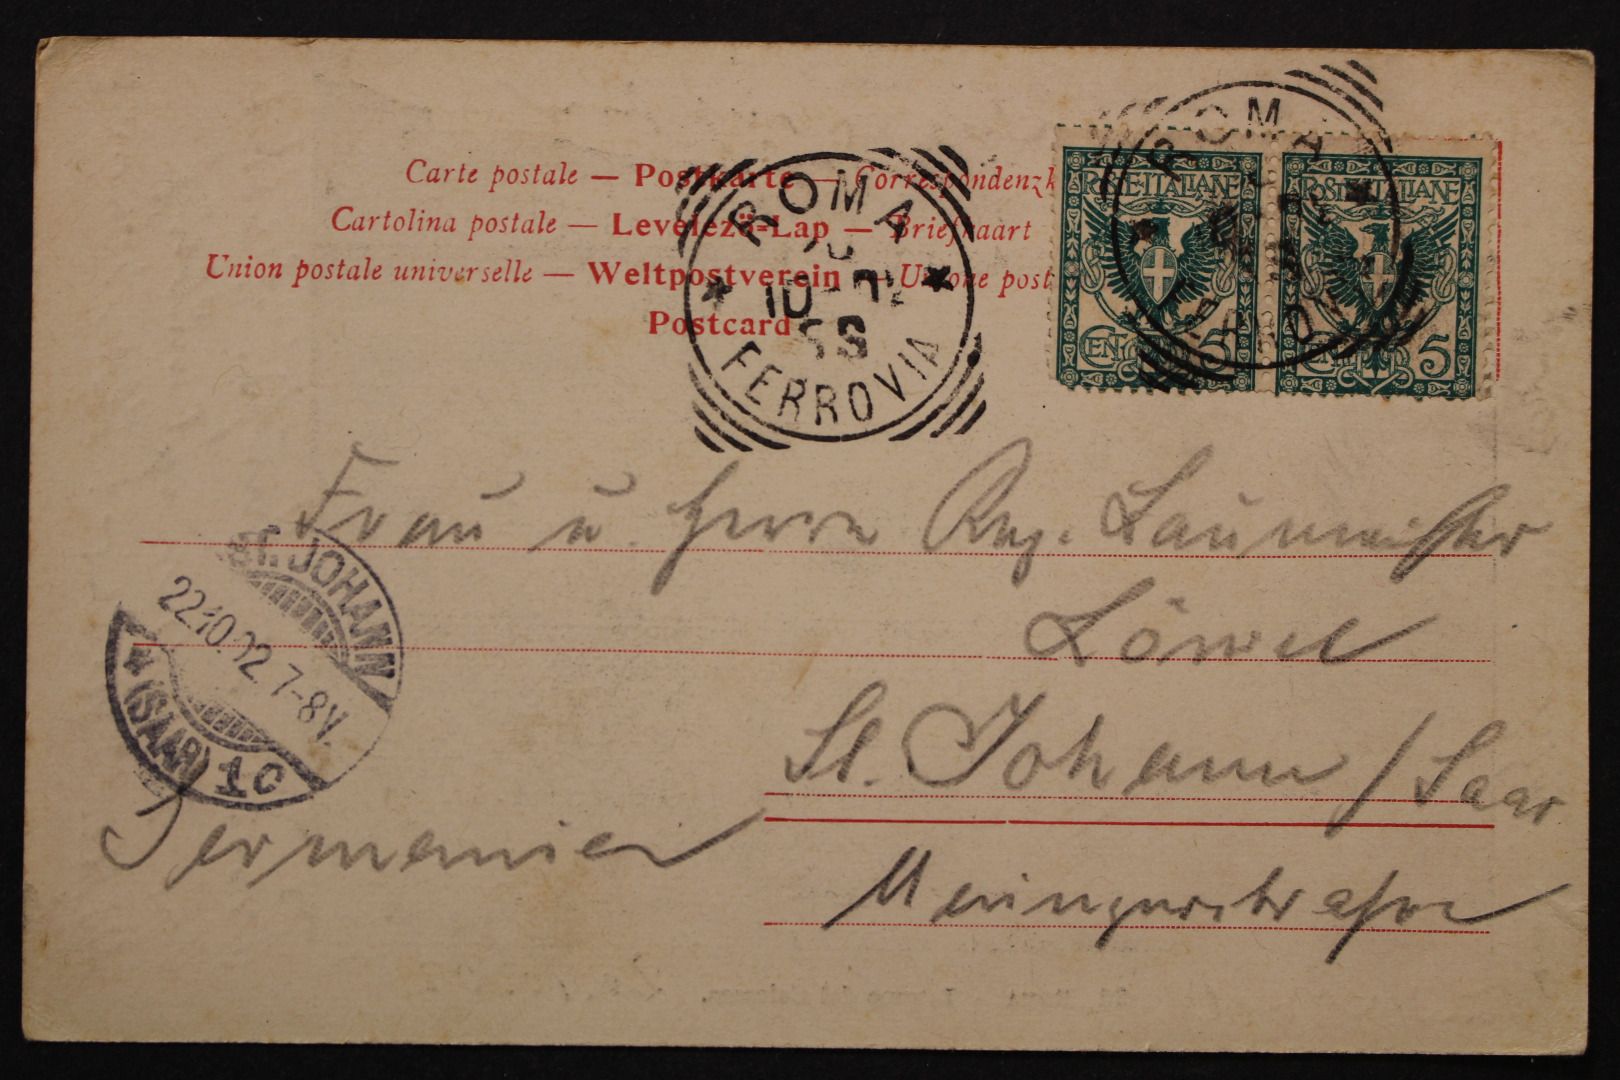 Carte postale — Postkarte — Correspondenzk
Cartolina postale — Levelező-Lap — Briefkaart
Union postale universelle — Weltpostverein — Unione post
Postcard
ROMA
10-02
FERROVIA
ROMA
POSTE ITALIANE
CENT. 5
POSTE ITALIANE
CENT. 5
Frau u. Herrn Reg. Baumeister
Löwel
St. Johann / Saar
Germania
ST. JOHANN
22.10.02.7-8V.
(SAAR) 1c